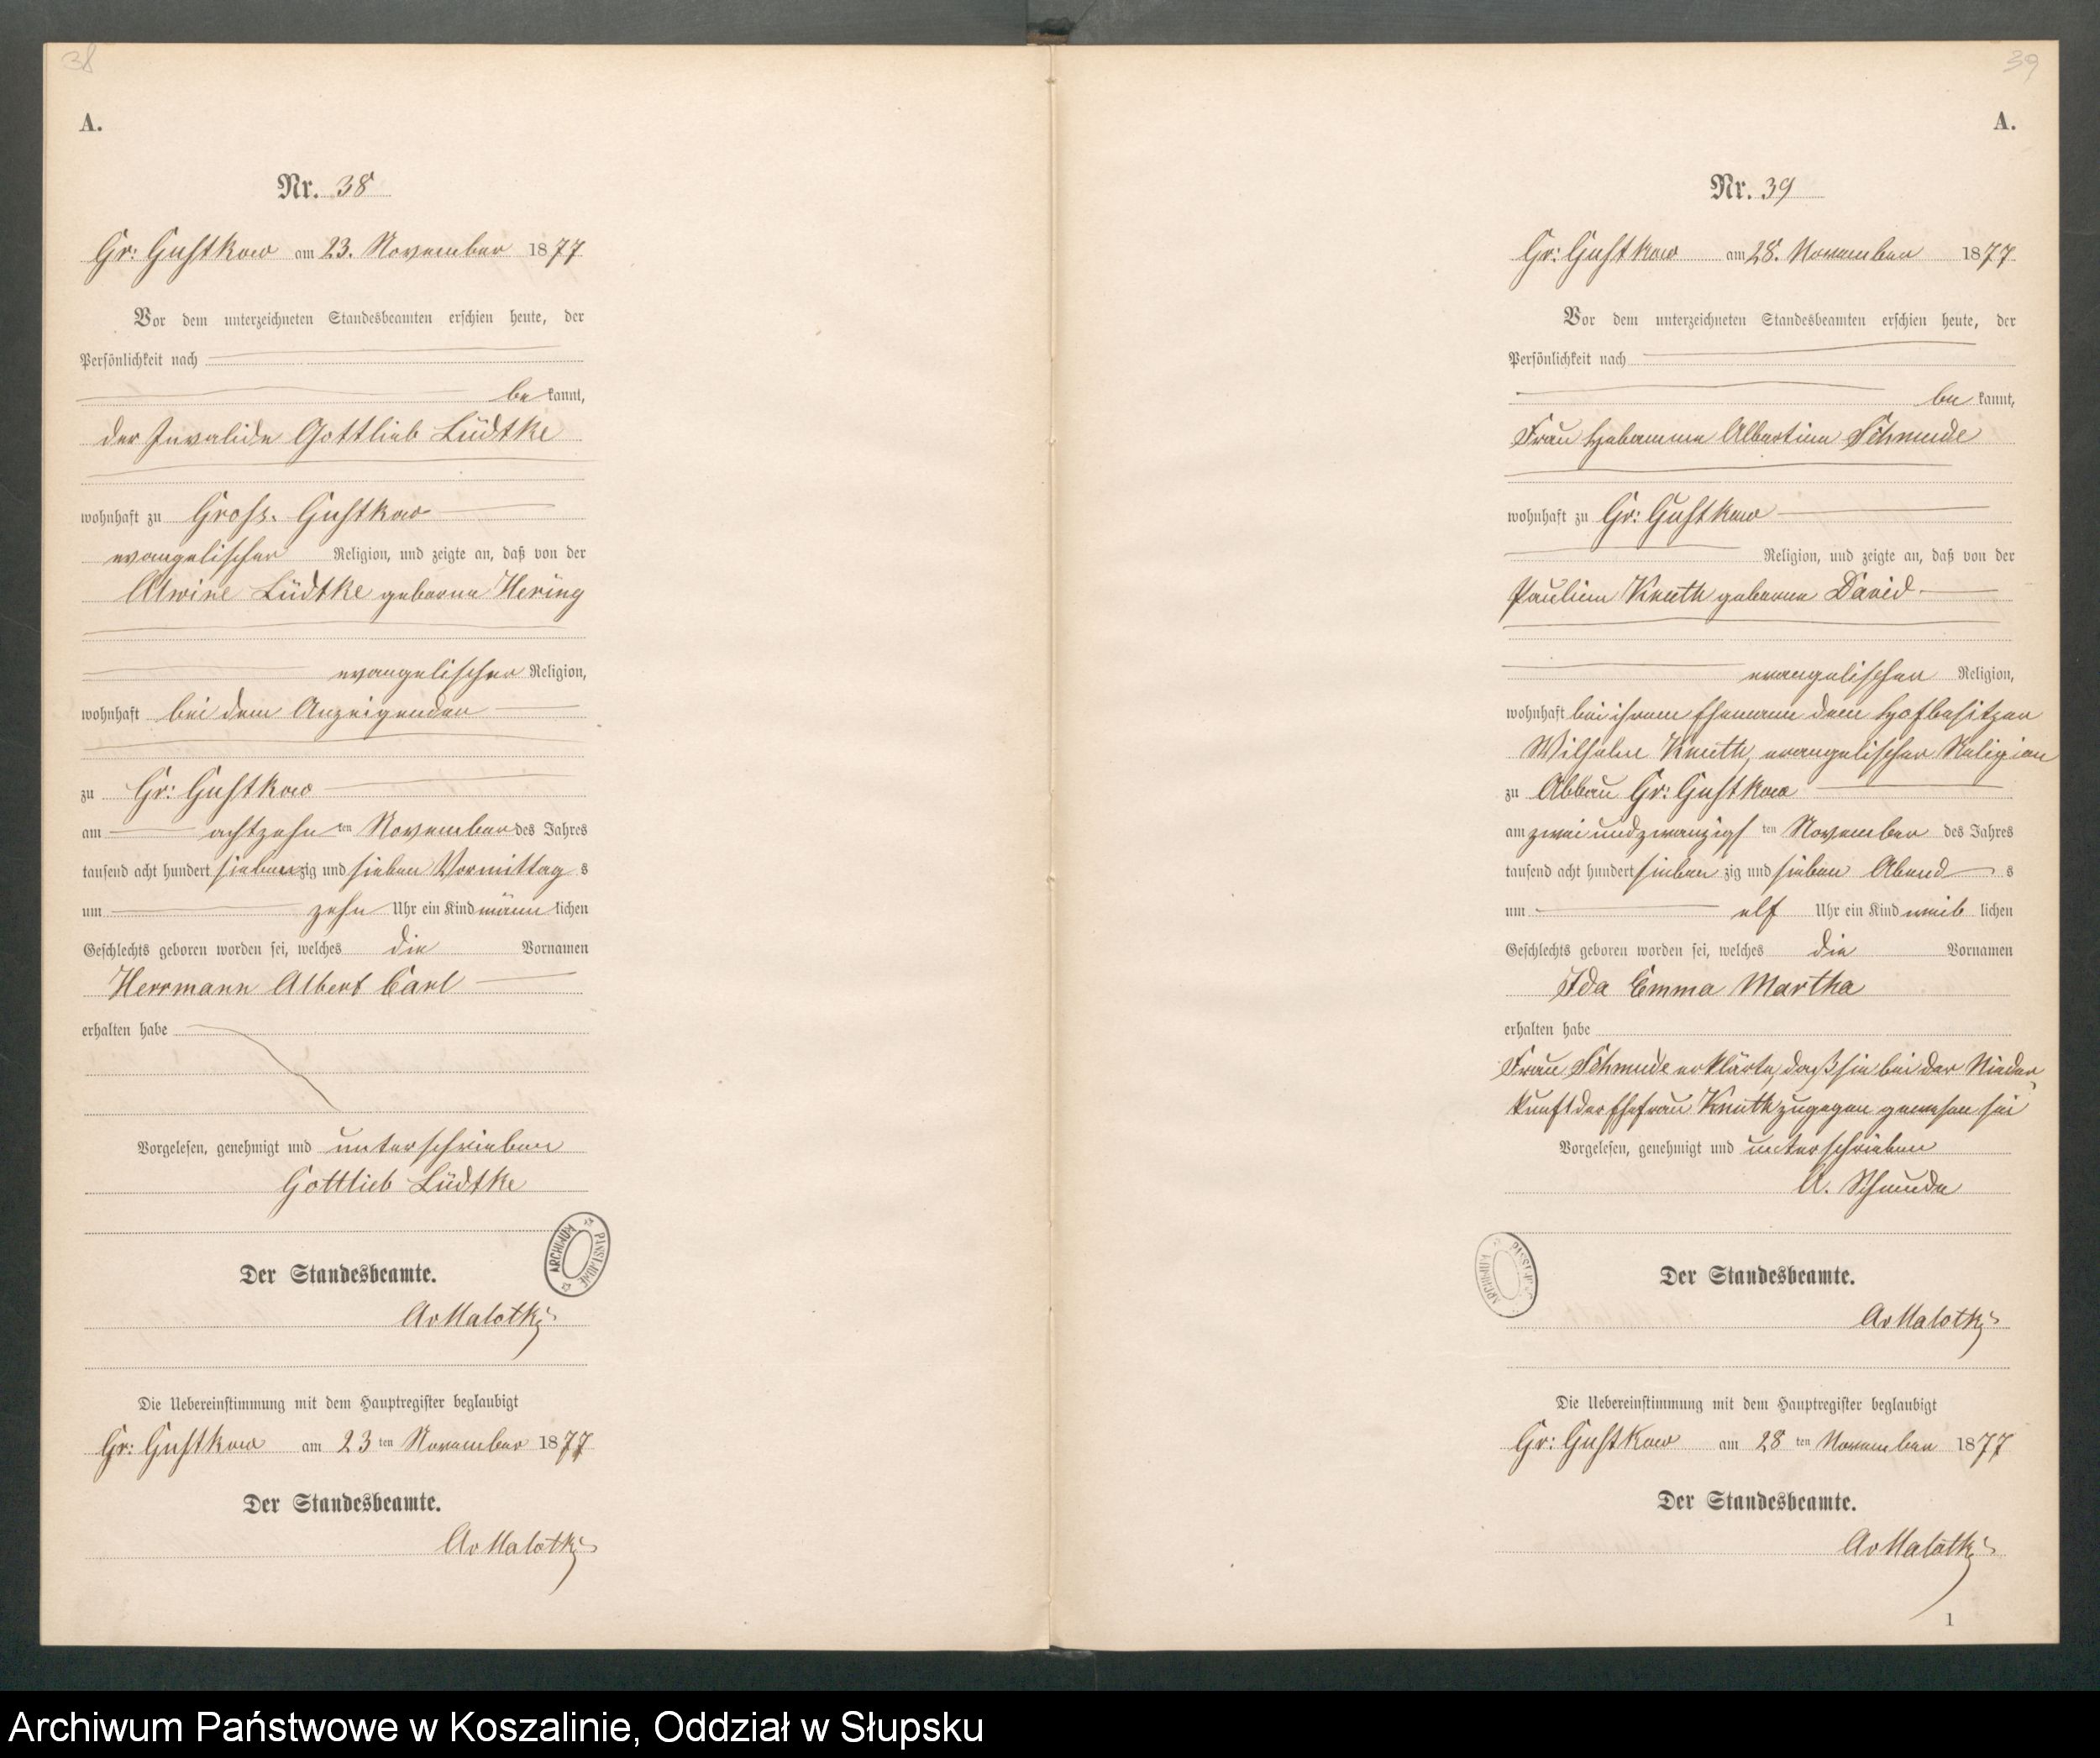 38
A.
Nr. 38
Gr: Gustkow am 23. November 1877
Vor dem unterzeichneten Standesbeamten erschien heute, der
Persönlichkeit nach
be kannt,
der Invalide Gottlieb Lüdtke
wohnhaft zu Gross. Gustkow
evangelischer Religion, und zeigte an, daß von der
Alwine Lüdtke geborne Hering
evangelischer Religion,
wohnhaft bei dem Anzeigenden
zu Gr: Gustkow
am achtzehn ten November des Jahres
tausend acht hundert siebenzig und sieben Vormittag s
um zehn Uhr ein Kind männ lichen
Geschlechts geboren worden sei, welches die Vornamen
Herrmann Albert Carl
erhalten habe
Vorgelesen, genehmigt und unterschrieben
Gottlieb Lüdtke
ARCHIWUM PAŃSTWOWE
Der Standesbeamte.
AvMalotki
Die Uebereinstimmung mit dem Hauptregister beglaubigt
Gr: Gustkow am 23 ten November 1877
Der Standesbeamte.
AvMalotki
39
A.
Nr. 39
Gr: Gustkow am 28. November 1877
Vor dem unterzeichneten Standesbeamten erschien heute, der
Persönlichkeit nach
be kannt,
Frau Hebamme Albertine Schmude
wohnhaft zu Gr: Gustkow
Religion, und zeigte an, daß von der
Pauline Knuth geborne David
evangelischer Religion,
wohnhaft bei ihrem Ehemanne dem Hofbesitzer
Wilhelm Knuth, evangelischer Religion
zu Abbau Gr: Gustkow
am zwei und zwanzigs ten November des Jahres
tausend acht hundert sieben zig und sieben Abend s
um elf Uhr ein Kind weib lichen
Geschlechts geboren worden sei, welches die Vornamen
Ida Emma Martha
erhalten habe
Frau Schmude erklärte, daß sie bei der Nieder
kunft der Ehefrau Knuth zugegen gewesen sei
Vorgelesen, genehmigt und unterschrieben
A. Schmude
Der Standesbeamte.
AvMalotki
Die Uebereinstimmung mit dem Hauptregister beglaubigt
Gr: Gustkow am 28 ten November 1877
Der Standesbeamte.
AvMalotki
1
Archiwum Państwowe w Koszalinie, Oddział w Słupsku